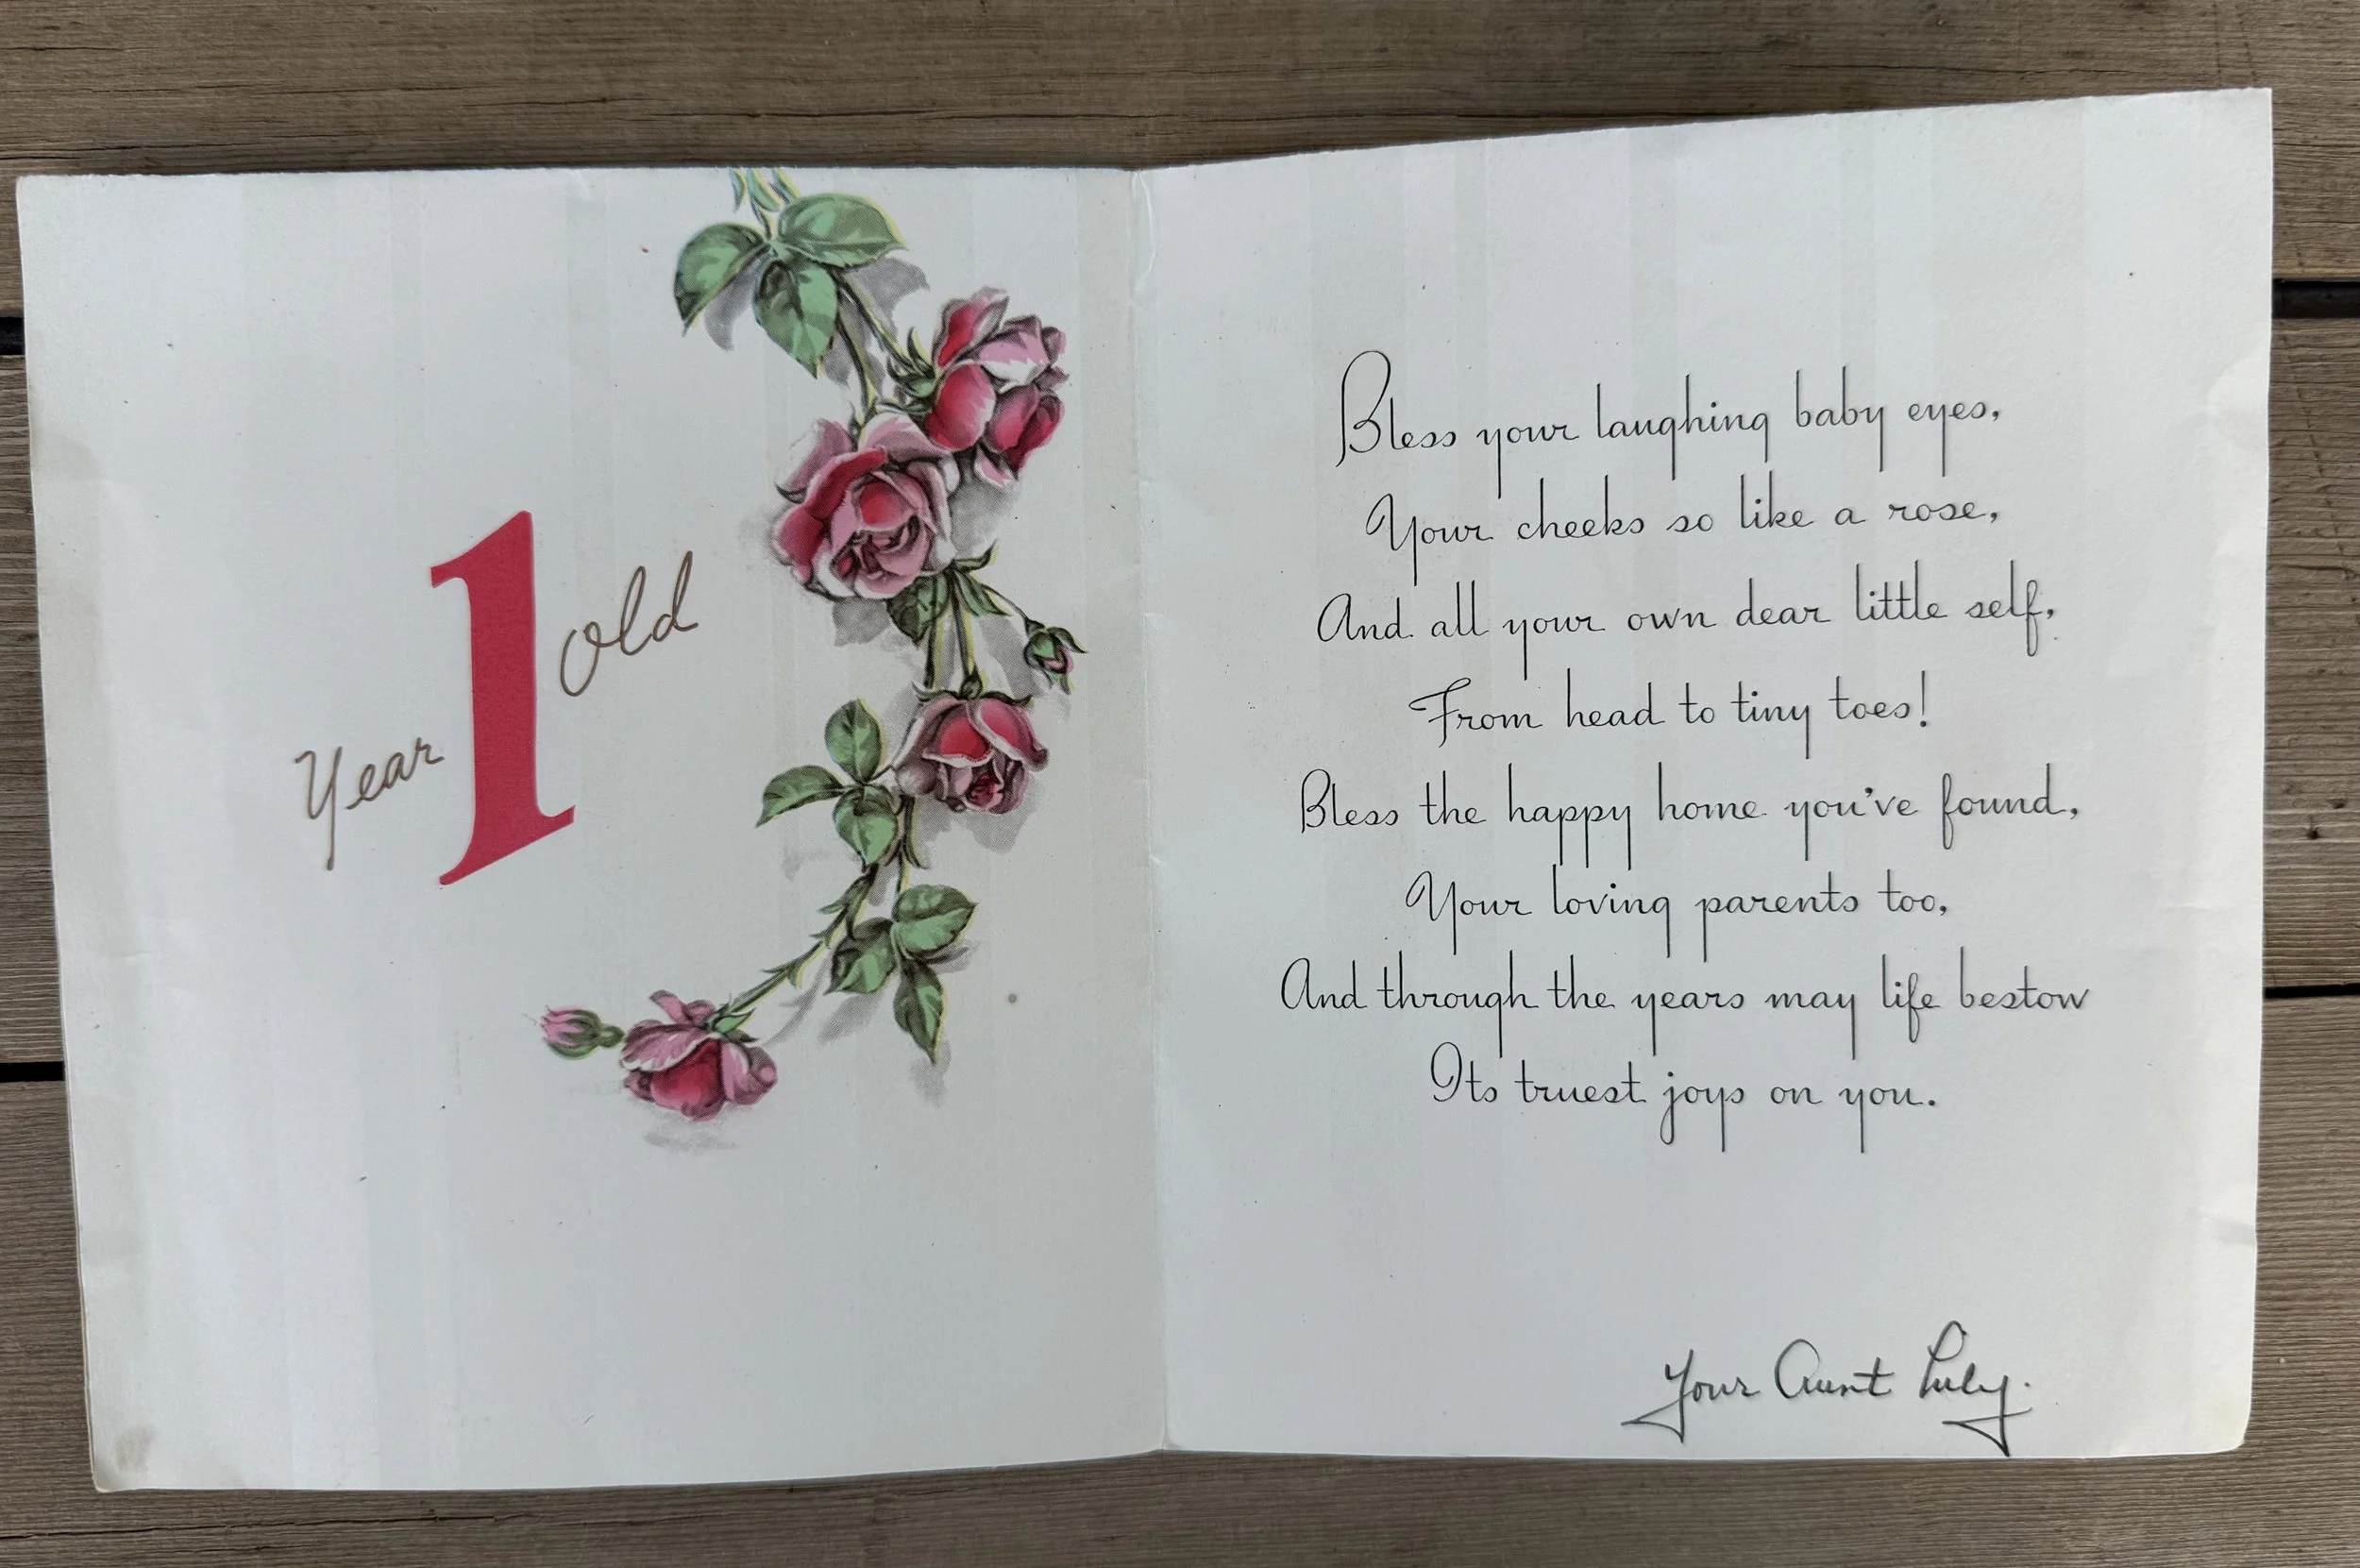 Year 1 old
Bless your laughing baby eyes,
Your cheeks so like a rose,
And all your own dear little self,
From head to tiny toes!
Bless the happy home you've found,
Your loving parents too,
And through the years may life bestow
Its truest joys on you.
Your Aunt